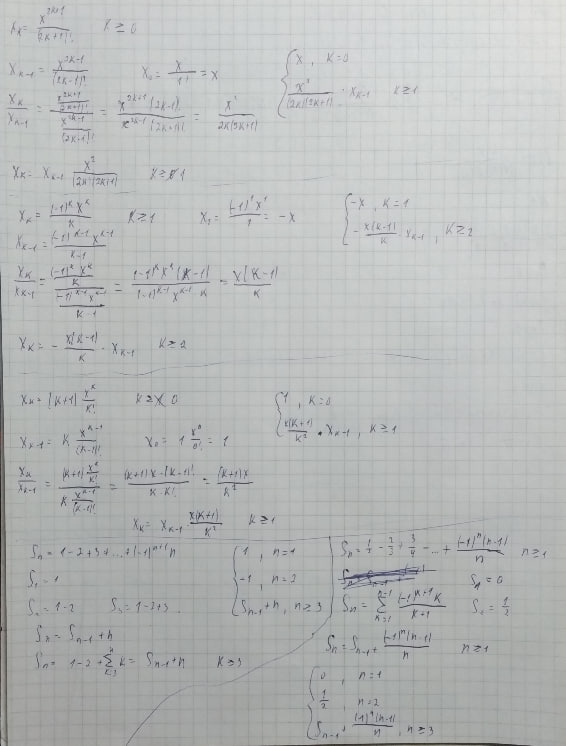 x_k = x^{2k+1}/(2k+1)! k ≥ 0
x_{k-1} = x^{2k-1}/(2k-1)! x_0 = x/1! = x { x, k=0
x_k/x_{k-1} = (x^{2k+1}/(2k+1)!)/(x^{2k-1}/(2k-1)!) = x^{2k+1}(2k-1)!/x^{2k-1}(2k+1)! = x^2/2k(2k+1) { x^2/(2k)(2k+1) · x_{k-1} k ≥ 1
x_k = x_{k-1} x^2/(2k)(2k+1) k ≥ 1
x_k = (-1)^k x^k/k k ≥ 1 x_1 = (-1)^1 x^1/1 = -x { -x, k=1
x_{k-1} = (-1)^{k-1} x^{k-1}/k-1 { -x(k-1)/k · x_{k-1}, k ≥ 2
x_k/x_{k-1} = ((-1)^k x^k/k)/((-1)^{k-1} x^{k-1}/k-1) = (-1)^k x^k (k-1)/(-1)^{k-1} x^{k-1} k = x(k-1)/k
x_k = -x(k-1)/k · x_{k-1} k ≥ 2
x_k = (k+1) x^k/k! k ≥ 0 { 1, k=0
x_{k-1} = k x^{k-1}/(k-1)! x_0 = 1 x^0/0! = 1 { x(k+1)/k^2 · x_{k-1}, k ≥ 1
x_k/x_{k-1} = ((k+1) x^k/k!)/(k x^{k-1}/(k-1)!) = (k+1)x·(k-1)!/k·k! = (k+1)x/k^2
x_k = x_{k-1} x(k+1)/k^2 k ≥ 1
S_n = 1-2+3+...+(-1)^{n+1} n
S_1 = 1
S_2 = 1-2 S_3 = 1-2+3
S_n = S_{n-1} + n
S_n = 1-2+∑_{k=3}^{n} k = S_{n-1}+n k ≥ 3
{ 1, n=1
-1, n=2
S_{n-1}+n, n ≥ 3
S_n = 1/2 - 2/3 + 3/4 - ... + (-1)^n(n-1)/n n ≥ 1
S_1 = 0
S_n = ∑_{k=1}^{n-1} (-1)^{k+1} k/k+1 S_2 = 1/2
S_n = S_{n-1} + (-1)^n(n-1)/n n ≥ 1
{ 0, n=1
1/2, n=2
S_{n-1} + (-1)^n(n-1)/n, n ≥ 3